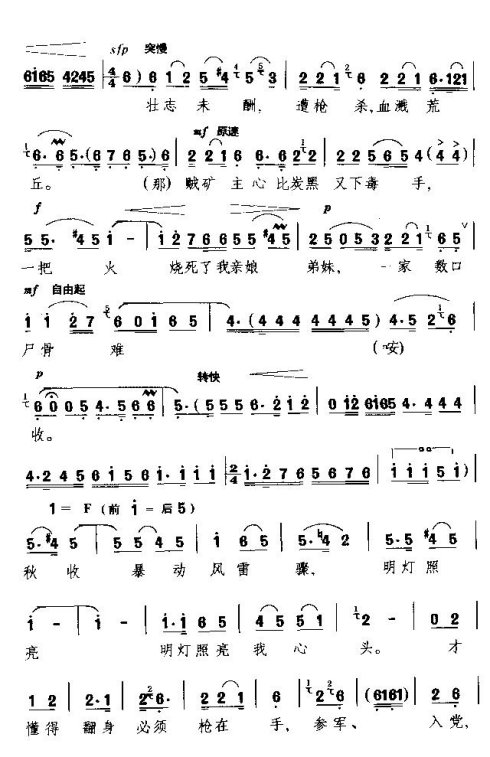 sfp 突慢
6165 4245 4/4 6) 6 1 2 5 #4 4 5 5 3 2 2 1 2 6 2 2 1 6·121
壮志未酬,遭枪杀,血溅荒
mf 原速
1 6· 6 5·(6 7 6 5·)6 2 2 1 6 6·6 2 1 2 2 5 6 5 4 (4 4)
丘。(那)贼矿主心比炭黑又下毒手,
f p
5 5· #4 5 1 - 1 2 7 6 6 5 5 #4 5 2 5 0 5 3 2 2 1 1 6 5
一把火烧死了我亲娘弟妹,一家数口
mf 自由起
1 1 2 7 5 6 0 1 6 5 4·(4 4 4 4 4 4 5) 4·5 2 1 6
尸骨难(安)
p 转快
1 6 0 0 5 4·5 6 6 5·(5 5 5 6·2 1 2 0 12 6165 4·4 4 4
收。
4·2 4 5 6 1 5 6 1·1 1 1 2/4 1·2 7 6 5 6 7 6 1 1 1 5 1)
1 = F (前 1 = 后 5)
5·#4 5 5 5 4 5 2 5 5·4 2 5·5 #4 5
秋收暴动风雷骤,明灯照
1 - 1 - 1·1 6 5 4 5 5 1 1 2 - 0 2
亮明灯照亮我心头。才
1 2 2·1 2 2 6· 2 2 1 6 1 2 2 6 (6161) 2 6
懂得翻身必须枪在手,参军、入党,